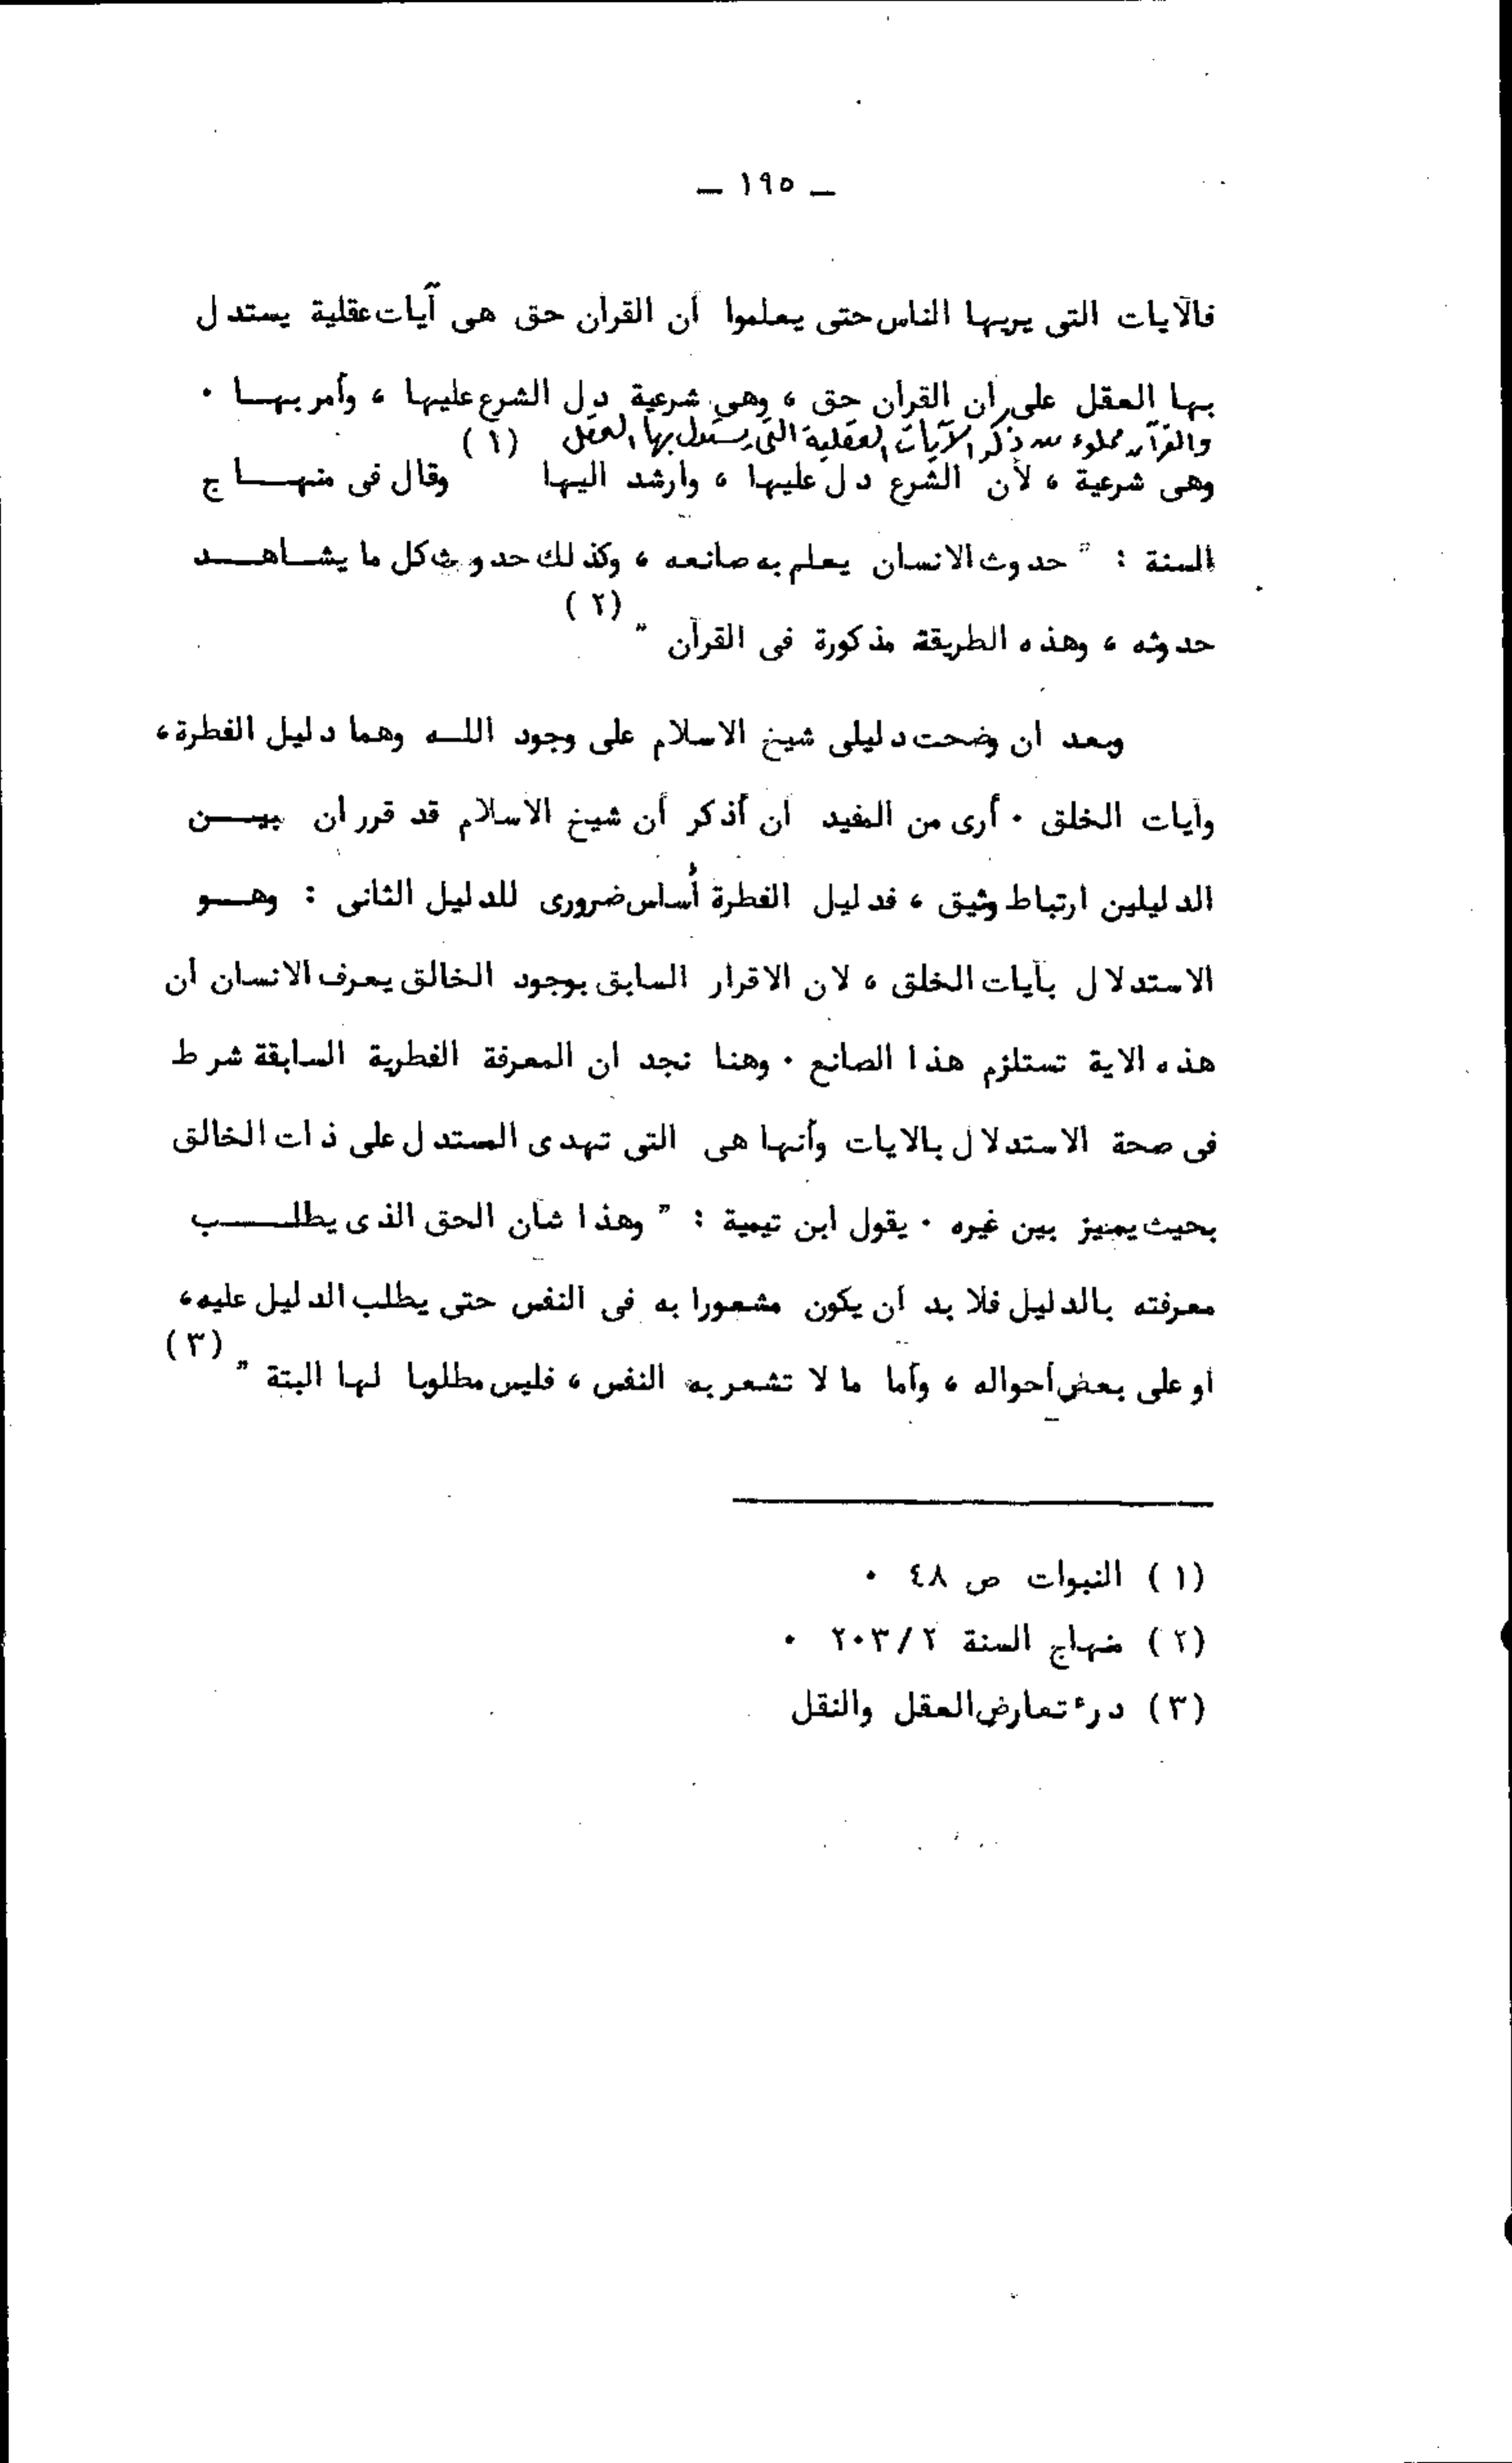 ـ ١٩٥ ـ
فالآيات التى يريها الناس حتى يعلموا أن القرآن حق هى آيات عقلية يستدل
بها العقل على ان القرآن حق ، وهى شرعية دل الشرع عليها ، وأمر بهـــا ٠
والقرآن مملوء من ذكر الآيات العقلية التى يستدل بها العقل (١)
وهى شرعية ، لأن الشرع دل عليها ، وارشد اليها وقال فى منهـــاج
السنة : " حدوث الانسان يعلم به صانعه ، وكذلك حدوث كل ما يشـاهــد
حدوثه ، وهذه الطريقة مذكورة فى القرآن " (٢)
وبعد ان وضحت دليلى شيخ الاسلام على وجود اللــه وهما دليل الفطرة ،
وآيات الخلق ٠ أرى من المفيد ان أذكر أن شيخ الاسلام قد قرر ان بيــن
الدليلين ارتباط وثيق ، فدليل الفطرة أساس ضرورى للدليل الثانى : وهــو
الاستدلال بآيات الخلق ، لان الاقرار السابق بوجود الخالق يعرف الانسان أن
هذه الاية تستلزم هذا الصانع ٠ وهنا نجد ان المعرفة الفطرية السابقة شرط
فى صحة الاستدلال بالايات وأنها هى التى تهدى المستدل على ذات الخالق
بحيث يميز بين غيره ٠ يقول ابن تيمية : " وهذا شأن الحق الذى يطلـــب
معرفته بالدليل فلا بد أن يكون مشعورا به فى النفس حتى يطلب الدليل عليه ،
او على بعض أحواله ، وأما ما لا تشعر به النفس ، فليس مطلوبا لها البتة " (٣)
(١) النبوات ص ٤٨ ٠
(٢) منهاج السنة ٢/٢٠٣ ٠
(٣) درء تعارض العقل والنقل